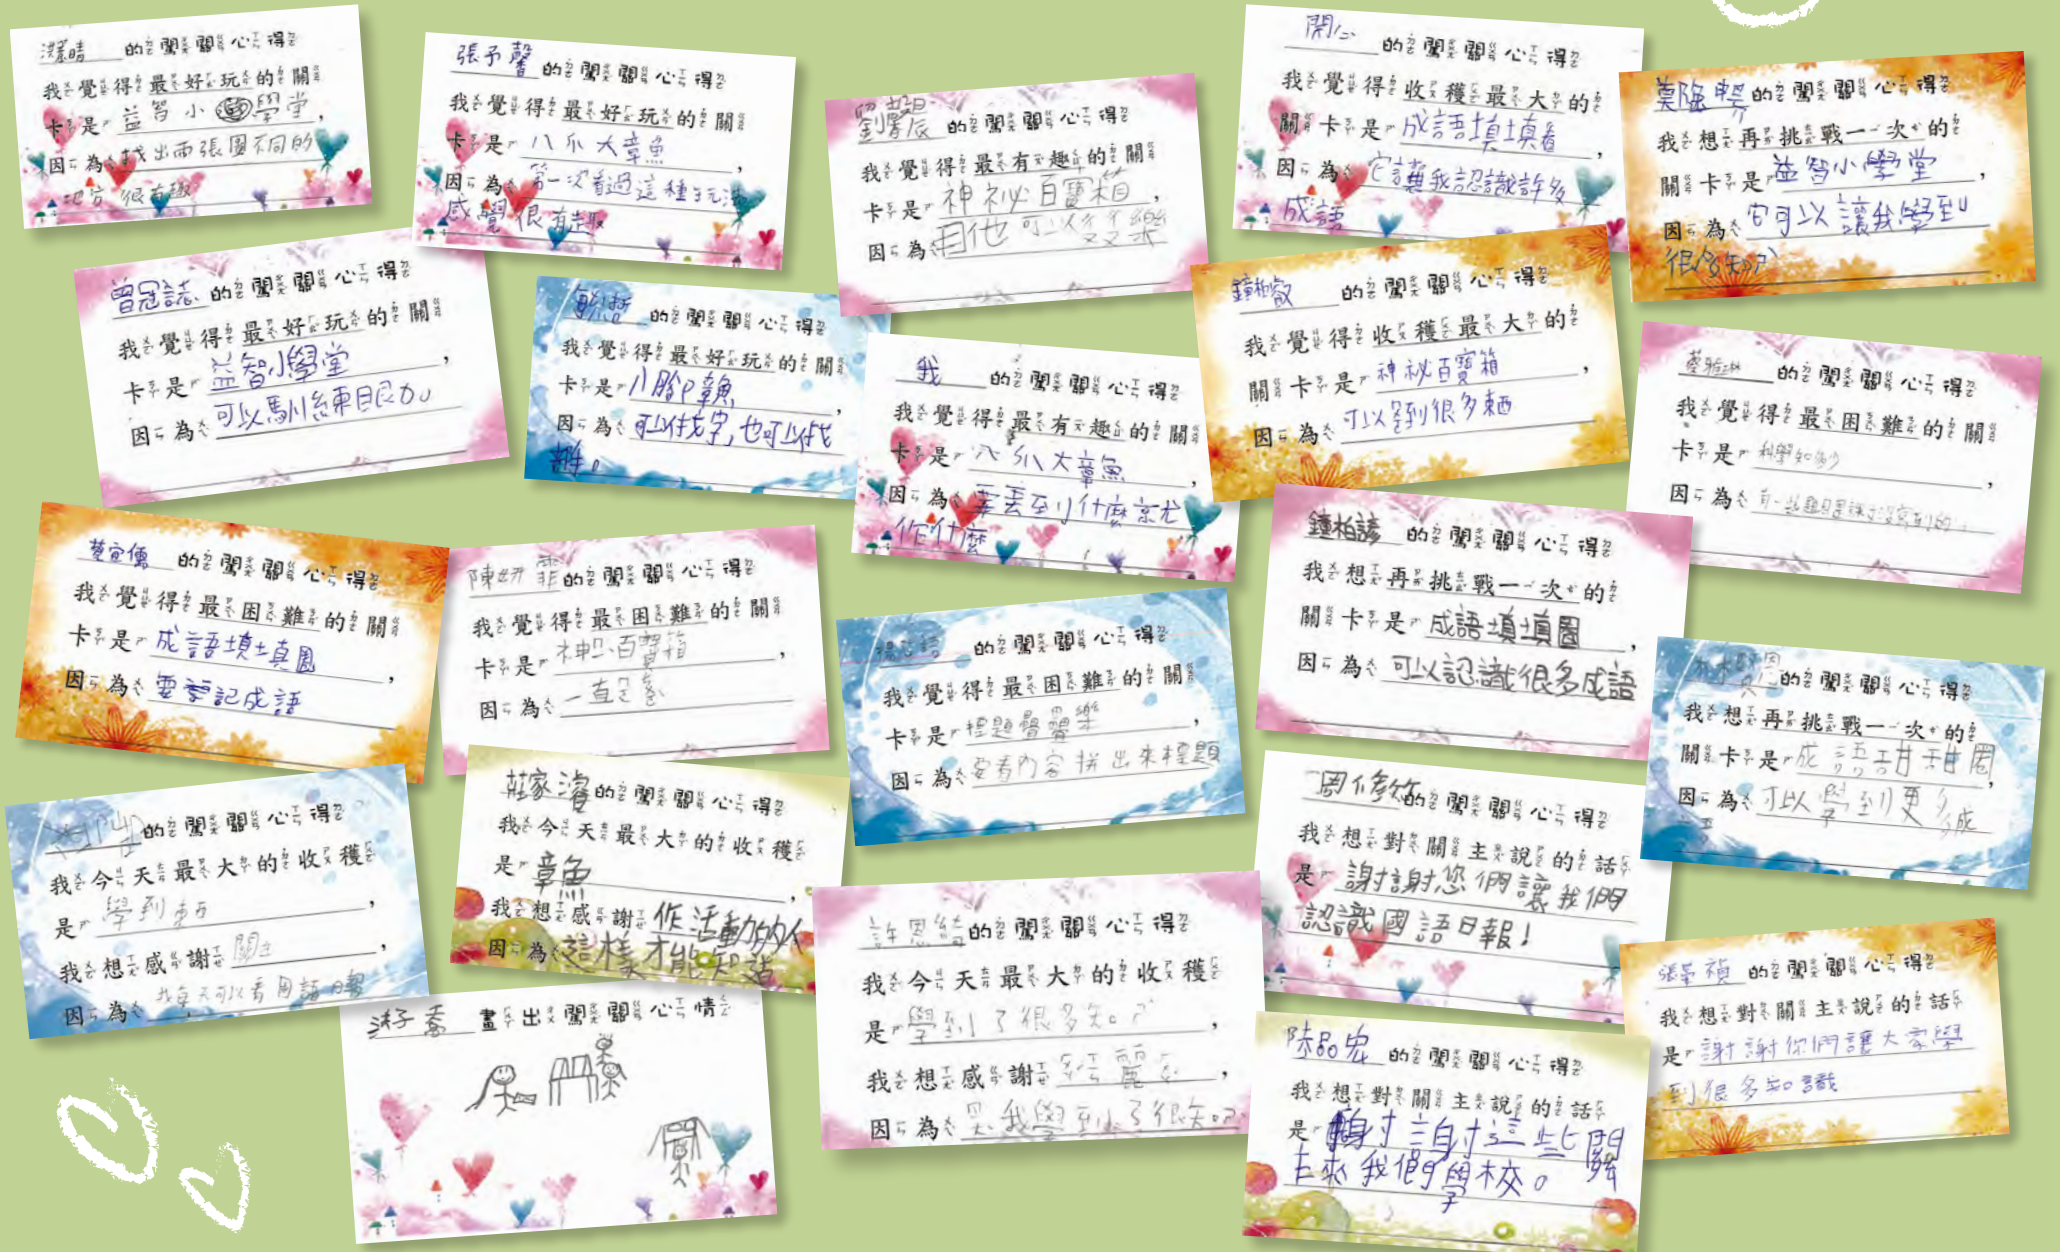 的闖關心得
我覺得最好玩的關
卡是益智小學堂，
因為找出兩張圖不同的
地方很有趣
張予馨的闖關心得
我覺得最好玩的關
卡是八爪大章魚，
因為第一次看過這種玩法
感覺很有趣
的闖關心得
我覺得最有趣的關
卡是神祕百寶箱，
因為
開心的闖關心得
我覺得收穫最大的
關卡是成語填填看，
因為它讓我認識許多
成語
的闖關心得
我想再挑戰一次的
關卡是益智小學堂
因為它可以讓我學到
很多知
曾冠誌的闖關心得
我覺得最好玩的關
卡是益智小學堂，
因為可以馴練眼力
的闖關心得
我覺得最好玩的關
卡是八腳章魚，
因為可以找字,也可以找
我的闖關心得
我覺得最有趣的關
卡是八爪大章魚，
因為要丟到什麼就
作什麼
鐘柏叡的闖關心得
我覺得收穫最大的
關卡是神祕百寶箱，
因為可以到很多東西
蔡雅琳的闖關心得
我覺得最困難的關
卡是科學知多少，
因為有一些題目
蔡宜儒的闖關心得
我覺得最困難的關
卡是成語填填圈，
因為要記成語
陳妍霏的闖關心得
我覺得最困難的關
卡是神百寶箱，
因為一直
的闖關心得
我覺得最困難的關
卡是標題疊疊樂，
因為要看內容拼出來標題
鐘柏諺的闖關心得
我想再挑戰一次的
關卡是成語填填圈，
因為可以認識很多成語
的闖關心得
我想再挑戰一次的
關卡是成語甜甜圈，
因為可以學到更多成
的闖關心得
我今天最大的收穫
是學到東西，
我想感謝關主，
因為我每天可以看國語日報
莊家濬的闖關心得
我今天最大的收穫
是章魚，
我想感謝作活動的人
因為這樣才能知道
洪子喬畫出闖關心情
許恩綺的闖關心得
我今天最大的收穫
是學到了很多知，
我想感謝，
因為是我學到了很知
周修的闖關心得
我想對關主說的話
是謝謝您們讓我們
認識國語日報!
的闖關心得
我想對關主說的話
是謝謝這些關
主來我們學校。
張禎的闖關心得
我想對關主說的話
是謝謝你們讓大家學
到很多知識